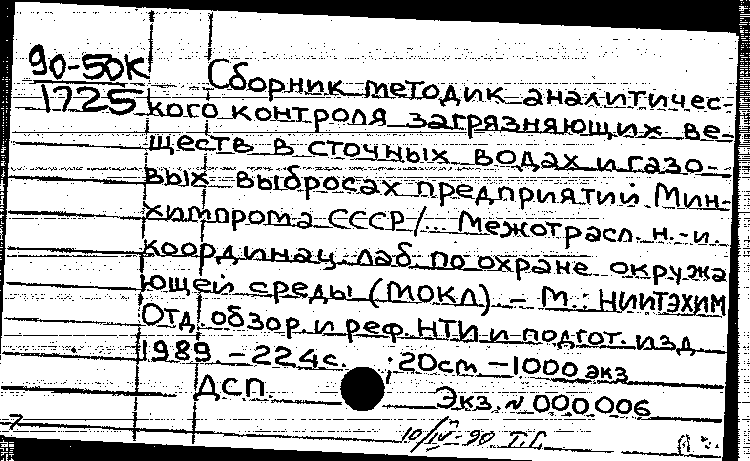 90-50К
1725
Сборник методик аналитичес-
кого контроля загрязняющих ве-
ществ в сточных водах и газо-
вых выбросах предприятий Мин-
химпрома СССР /... Межотрасл. н.-и.
координац. лаб. по охране окружа
ющей среды (МОКЛ). - М.: НИИТЭХИМ
Отд. обзор. и реф. НТИ и подгот. изд.
1989. - 224с. ; 20см. - 1000 экз
ДСП. Экз. № 000006
10/IV-90 Т.Г.